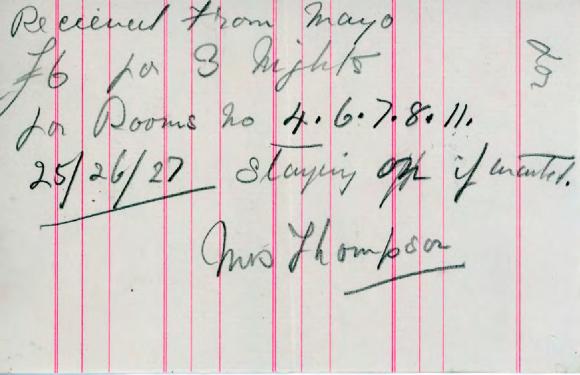 Received From Mayo
£6 for 3 Nights
for Rooms No 4.6.7.8.11.
25/26/27 Staying on if wanted.
Mrs Thompson